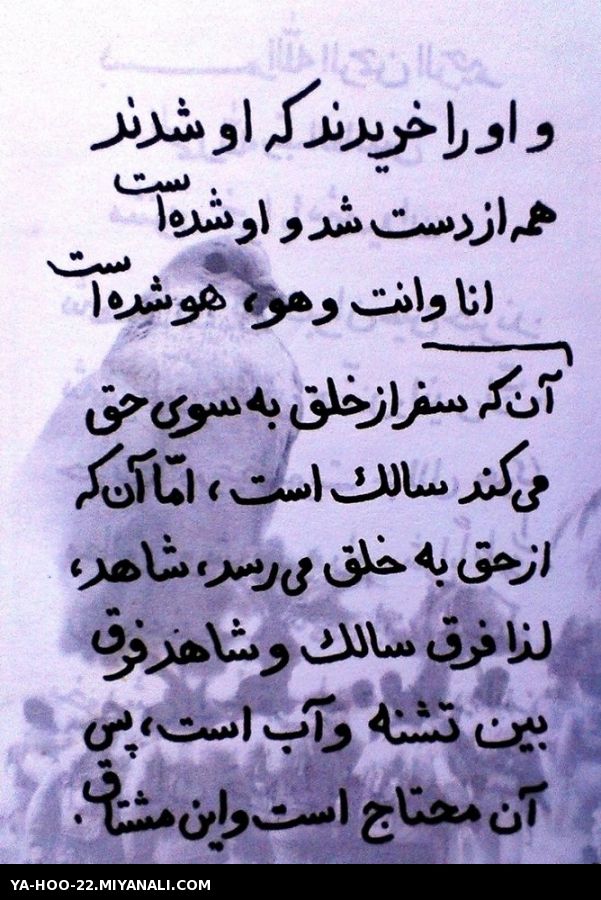 و او را خریدند که او شدند
همه از دست شد و او شده است
انا و انت و هو، هو شده است
آن که سفر از خلق به سوی حق
می‌کند سالک است، امّا آن که
از حق به خلق می‌رسد، شاهد،
لذا فرق سالک و شاهد فرق
بین تشنه و آب است، پس
آن محتاج است و این مشتاق.
YA-HOO-22.MIYANALI.COM